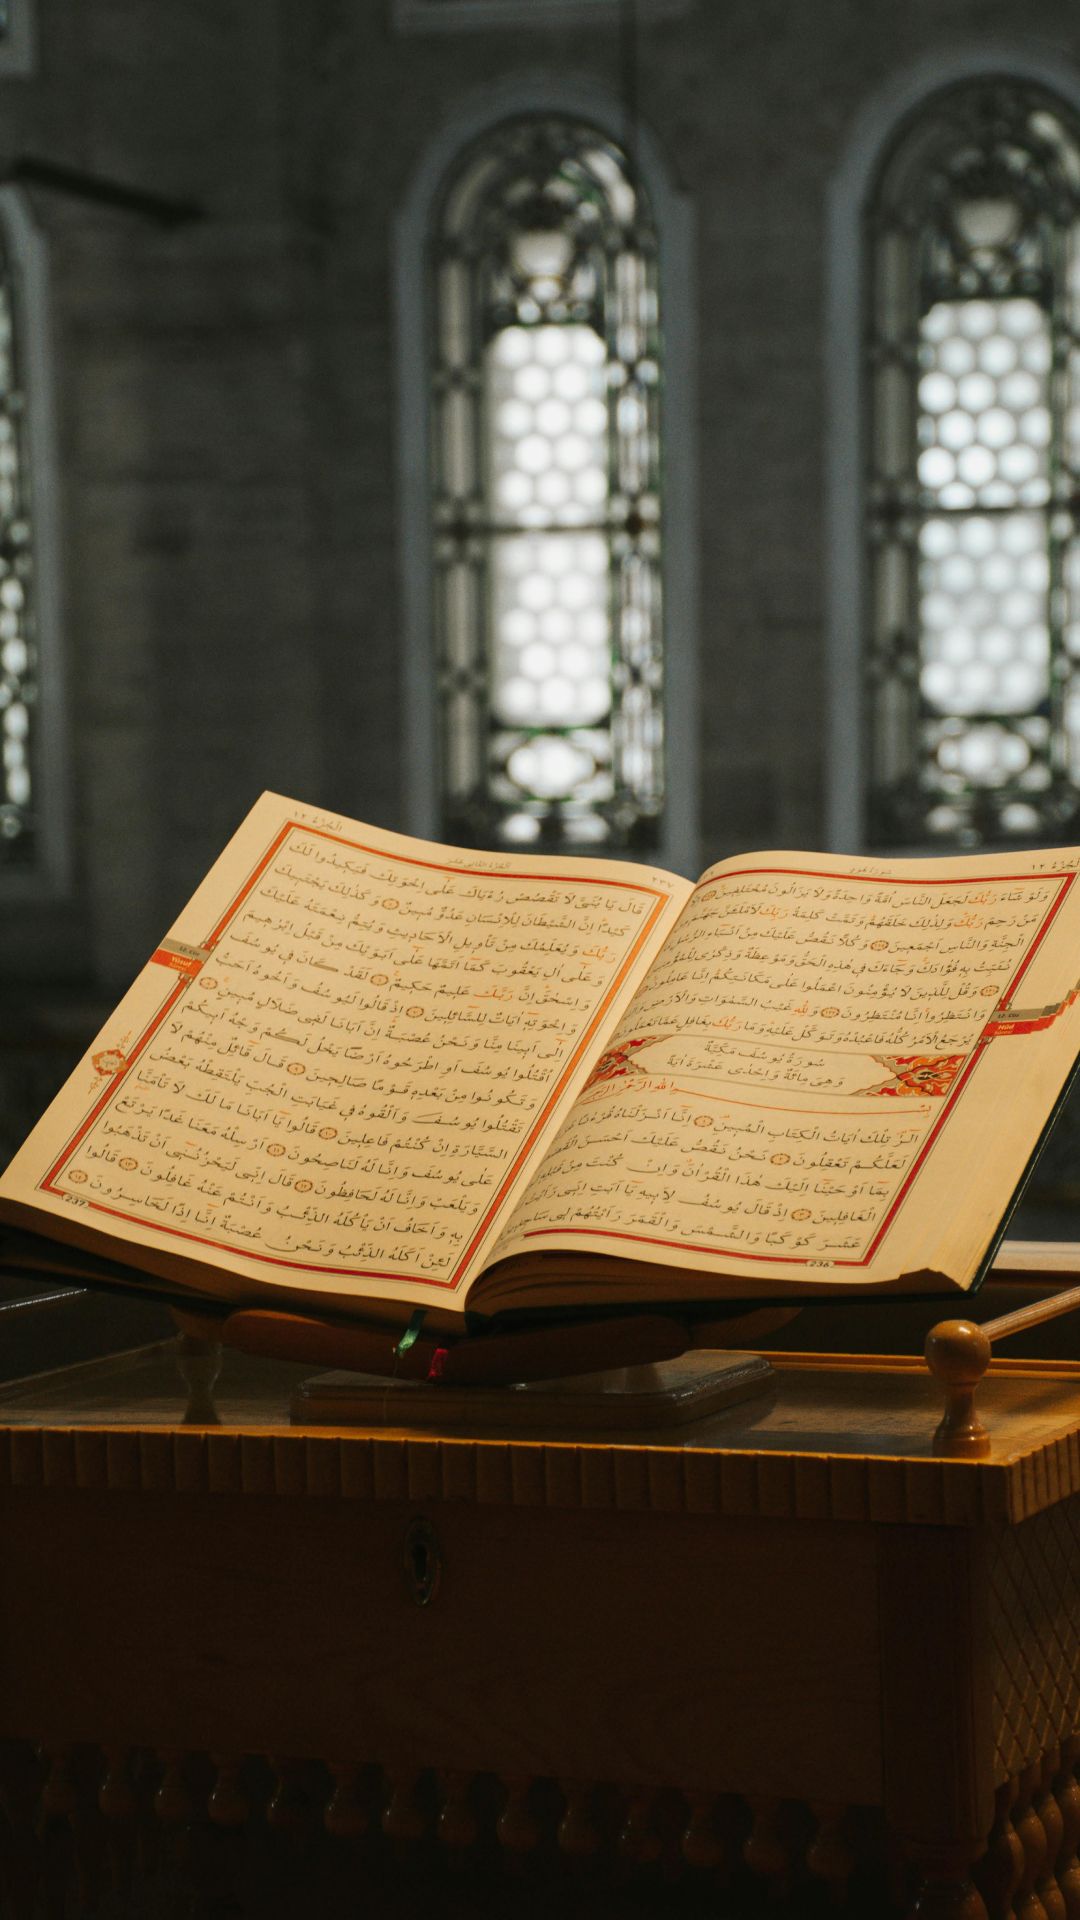 اَلْجُزْءُ ١٢
سُورَةُ هُودٍ
وَلَوْ شَاءَ رَبُّكَ لَجَعَلَ النَّاسَ اُمَّةً وَاحِدَةً وَلَا يَزَالُونَ مُخْتَلِفِينَ
مَنْ رَحِمَ رَبُّكَ وَلِذٰلِكَ خَلَقَهُمْ وَتَمَّتْ كَلِمَةُ رَبِّكَ لَاَمْلَئَنَّ جَهَنَّمَ
الْجِنَّةِ وَالنَّاسِ اَجْمَعِينَ وَكُلًّا نَقُصُّ عَلَيْكَ مِنْ اَنْبَاءِ الرُّسُلِ
نُثَبِّتُ بِهِ فُؤَادَكَ وَجَاءَكَ فِي هٰذِهِ الْحَقُّ وَمَوْعِظَةٌ وَذِكْرٰى لِلْمُؤْمِنِينَ
وَقُلْ لِلَّذِينَ لَا يُؤْمِنُونَ اعْمَلُوا عَلٰى مَكَانَتِكُمْ اِنَّا عَامِلُونَ
وَانْتَظِرُوا اِنَّا مُنْتَظِرُونَ وَلِلّٰهِ غَيْبُ السَّمٰوَاتِ وَالْاَرْضِ
يُرْجَعُ الْاَمْرُ كُلُّهُ فَاعْبُدْهُ وَتَوَكَّلْ عَلَيْهِ وَمَا رَبُّكَ بِغَافِلٍ عَمَّا تَعْمَلُونَ
سُورَةُ يُوسُفَ مَكِّيَّةٌ
وَهِيَ مِائَةٌ وَاِحْدٰى عَشْرَةَ اٰيَةً
بِسْمِ اللّٰهِ الرَّحْمٰنِ الرَّحِيمِ
الٓرٰ تِلْكَ اٰيَاتُ الْكِتَابِ الْمُبِينِ اِنَّا اَنْزَلْنَاهُ قُرْءٰنًا
لَعَلَّكُمْ تَعْقِلُونَ نَحْنُ نَقُصُّ عَلَيْكَ اَحْسَنَ الْقَصَصِ
بِمَا اَوْحَيْنَا اِلَيْكَ هٰذَا الْقُرْاٰنَ وَاِنْ كُنْتَ مِنْ قَبْلِهِ
الْغَافِلِينَ اِذْ قَالَ يُوسُفُ لِاَبِيهِ يَا اَبَتِ اِنِّي رَاَيْتُ
عَشَرَ كَوْكَبًا وَالشَّمْسَ وَالْقَمَرَ رَاَيْتُهُمْ لِي سَاجِدِينَ
236
12. Cüz
Hûd
Sûresi
٢٣٧
اَلْجُزْءُ الثَّانِي عَشَرَ
اَلْجُزْءُ ١٢
قَالَ يَا بُنَيَّ لَا تَقْصُصْ رُءْيَاكَ عَلٰى اِخْوَتِكَ فَيَكِيدُوا لَكَ
كَيْدًا اِنَّ الشَّيْطَانَ لِلْاِنْسَانِ عَدُوٌّ مُبِينٌ وَكَذٰلِكَ يَجْتَبِيكَ
رَبُّكَ وَيُعَلِّمُكَ مِنْ تَأْوِيلِ الْاَحَادِيثِ وَيُتِمُّ نِعْمَتَهُ عَلَيْكَ
وَعَلٰى اٰلِ يَعْقُوبَ كَمَا اَتَمَّهَا عَلٰى اَبَوَيْكَ مِنْ قَبْلُ اِبْرٰهِيمَ
وَاِسْحٰقَ اِنَّ رَبَّكَ عَلِيمٌ حَكِيمٌ لَقَدْ كَانَ فِي يُوسُفَ
وَاِخْوَتِهِ اٰيَاتٌ لِلسَّائِلِينَ اِذْ قَالُوا لَيُوسُفُ وَاَخُوهُ اَحَبُّ
اِلٰى اَبِينَا مِنَّا وَنَحْنُ عُصْبَةٌ اِنَّ اَبَانَا لَفِي ضَلَالٍ مُبِينٍ
اُقْتُلُوا يُوسُفَ اَوِ اطْرَحُوهُ اَرْضًا يَخْلُ لَكُمْ وَجْهُ اَبِيكُمْ
وَتَكُونُوا مِنْ بَعْدِهِ قَوْمًا صَالِحِينَ قَالَ قَائِلٌ مِنْهُمْ لَا
تَقْتُلُوا يُوسُفَ وَاَلْقُوهُ فِي غَيَابَتِ الْجُبِّ يَلْتَقِطْهُ بَعْضُ
السَّيَّارَةِ اِنْ كُنْتُمْ فَاعِلِينَ قَالُوا يَا اَبَانَا مَا لَكَ لَا تَأْمَنَّا
عَلٰى يُوسُفَ وَاِنَّا لَهُ لَنَاصِحُونَ اَرْسِلْهُ مَعَنَا غَدًا يَرْتَعْ
وَيَلْعَبْ وَاِنَّا لَهُ لَحَافِظُونَ قَالَ اِنِّي لَيَحْزُنُنِي اَنْ تَذْهَبُوا
بِهِ وَاَخَافُ اَنْ يَأْكُلَهُ الذِّئْبُ وَاَنْتُمْ عَنْهُ غَافِلُونَ قَالُوا
لَئِنْ اَكَلَهُ الذِّئْبُ وَنَحْنُ عُصْبَةٌ اِنَّا اِذًا لَخَاسِرُونَ
237
12. Cüz
Yûsuf
Sûresi